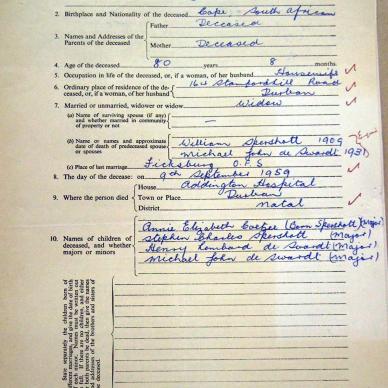 2. Birthplace and Nationality of the deceased Cape - South African
Father Deceased
3. Names and Addresses of the Parents of the deceased
Mother Deceased
4. Age of the deceased 80 years 8 months.
5. Occupation in life of the deceased, or, if a woman, of her husband Housewife
6. Ordinary place of residence of the deceased, or, if a woman, of her husband Stamfordhill Road
Durban
7. Married or unmarried, widower or widow Widow
(a) Name of surviving spouse (if any) and whether married in community of property or not —
(b) Name or names and approximate date of death of predeceased spouse or spouses William Spershott 1909
Michael John de Swardt 1931
(c) Place of last marriage Ficksburg O.F.S
8. The day of the decease: on 9th September 1959
House Addington Hospital
9. Where the person died Town or Place Durban
District Natal
10. Names of children of deceased, and whether majors or minors
Annie Elizabeth (Born Spershott) (Major)
Stephen Charles Spershott (Major)
Henry Lombard de Swardt (Major)
Michael John de Swardt (Major)
State separately the children born of